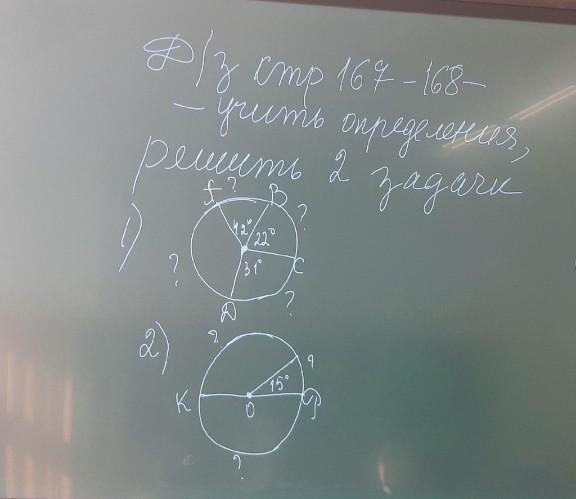 Д/з стр 167-168-
- учить определения,
решить 2 задачи
1)
A ? B
?
42° 22°
? 31° C
D ?
2)
? ?
15°
K O P
?